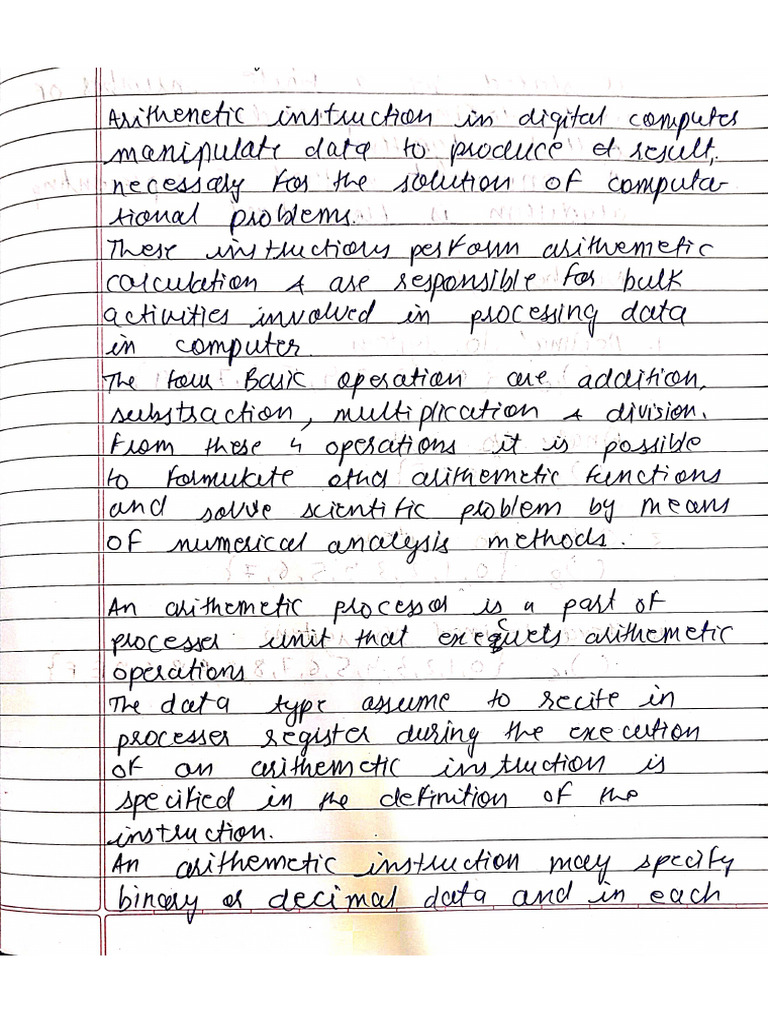 Arithenetic instruction in digital computer
manipulate data to produce et result,
necessary for the solution of computa-
tional problems.
These instructions perform arithemetic
calculation & are responsible for bulk
activities involved in processing data
in computer.
The four Basic operation are addition,
substraction, multiplication & division.
From these 4 operations it is possible
to formulate other arithemetic functions
and solve scientific problem by means
of numerical analysis methods.
An arithemetic processor is a part of
processer unit that arithemetic
operations
The data type assume to recite in
processer register during the execution
of an arithemetic instruction is
specified in the definition of the
instruction.
An arithemetic instruction may specify
binary or decimal data and in each